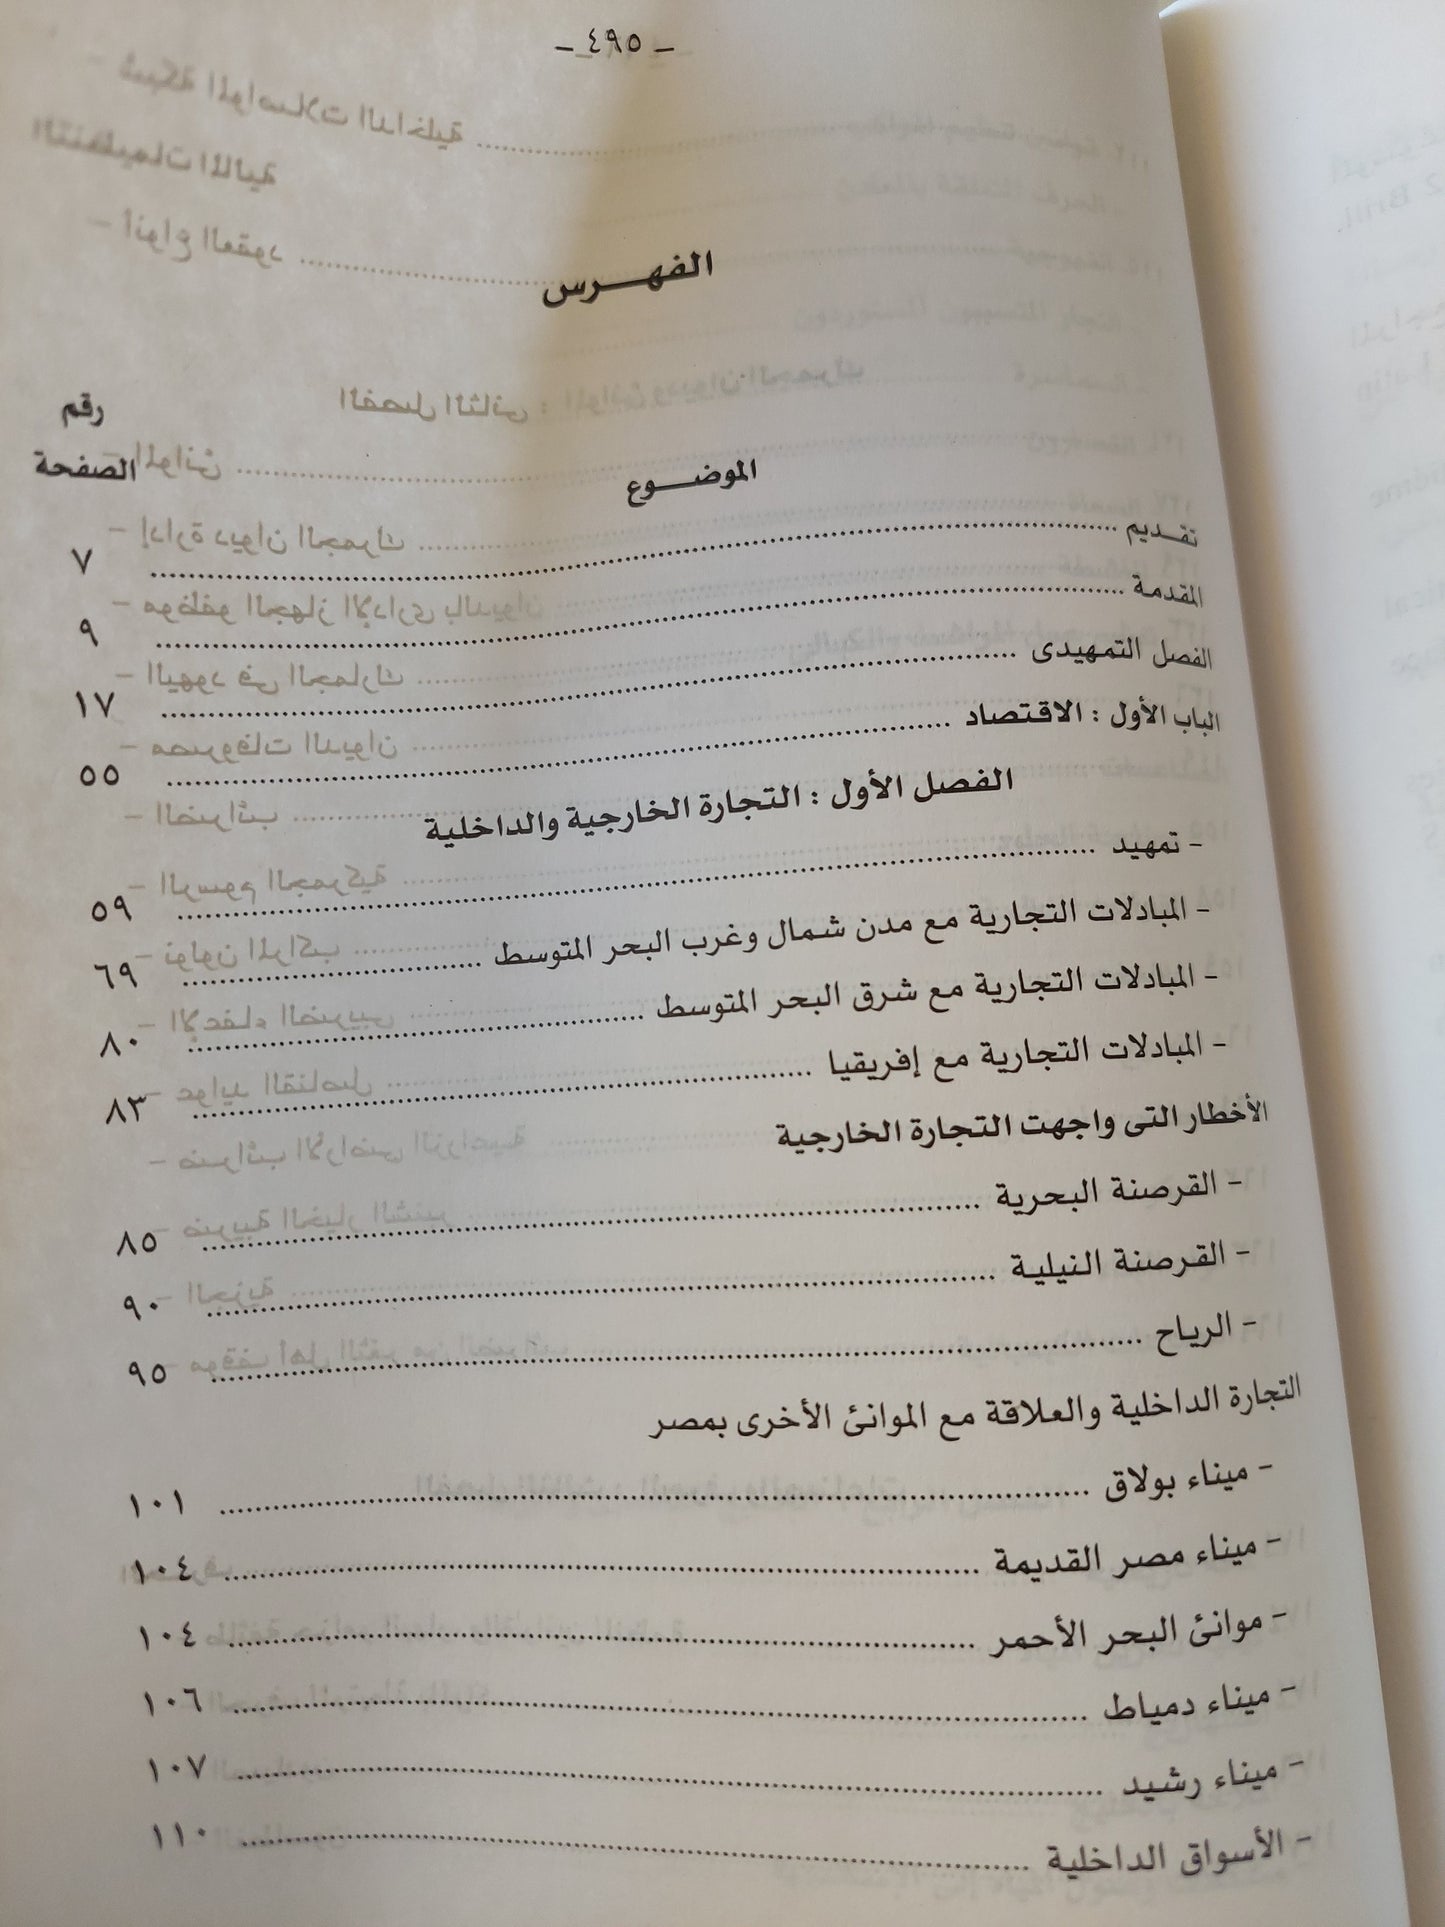 – ٤٩٥ –
الفهـــرس
رقم
الموضـــوع الصفحة
تقـديم ........ ٧
المقدمة ........ ٩
الفصل التمهيدى ........ ١٧
الباب الأول : الاقتصاد ........ ٥٥
الفصل الأول : التجارة الخارجية والداخلية
- تمهيد ........ ٥٩
- المبادلات التجارية مع مدن شمال وغرب البحر المتوسط ........ ٦٩
- المبادلات التجارية مع شرق البحر المتوسط ........ ٨٠
- المبادلات التجارية مع إفريقيا ........ ٨٣
الأخطار التى واجهت التجارة الخارجية
- القرصنة البحرية ........ ٨٥
- القرصنة النيلية ........ ٩٠
- الرياح ........ ٩٥
التجارة الداخلية والعلاقة مع الموانئ الأخرى بمصر
- ميناء بولاق ........ ١٠١
- ميناء مصر القديمة ........ ١٠٤
- موانئ البحر الأحمر ........ ١٠٤
- ميناء دمياط ........ ١٠٦
- ميناء رشيد ........ ١٠٧
- الأسواق الداخلية ........ ١١٠
Brill